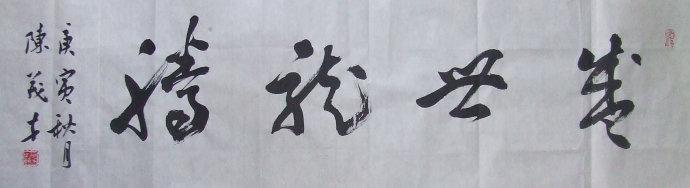 盛世龍騰
庚寅秋月
陳茂才